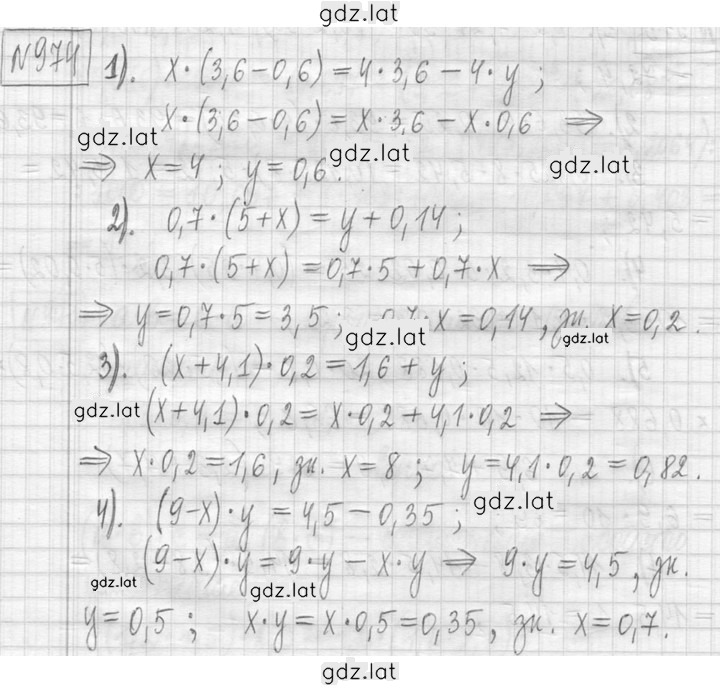 gdz.lat
№974 1). x·(3,6−0,6)=4·3,6−4·y ;
x·(3,6−0,6)=x·3,6−x·0,6 ⇒
gdz.lat gdz.lat gdz.lat
⇒ x=4 ; y=0,6.
2). 0,7·(5+x)=y+0,14;
0,7·(5+x)=0,7·5+0,7·x ⇒
⇒ y=0,7·5=3,5 ; 0,7·x=0,14, зн. x=0,2.
gdz.lat gdz.lat
3). (x+4,1)·0,2=1,6+y ;
gdz.lat (x+4,1)·0,2=x·0,2+4,1·0,2 ⇒
⇒ x·0,2=1,6, зн. x=8 ; y=4,1·0,2=0,82.
gdz.lat
4). (9−x)·y=4,5−0,35 ;
(9−x)·y=9·y−x·y ⇒ 9·y=4,5, зн.
gdz.lat gdz.lat
y=0,5 ; x·y=x·0,5=0,35, зн. x=0,7.
gdz.lat